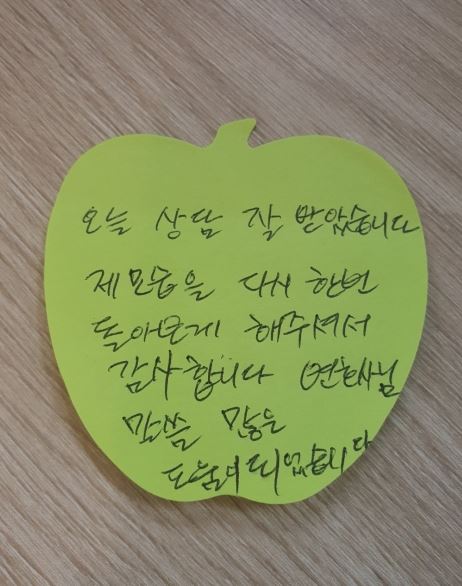 오늘 상담 잘 받았습니다
제 모습을 다시 한번
돌아보게 해주셔서
감사합니다
말씀 많은
도움이 되었습니다